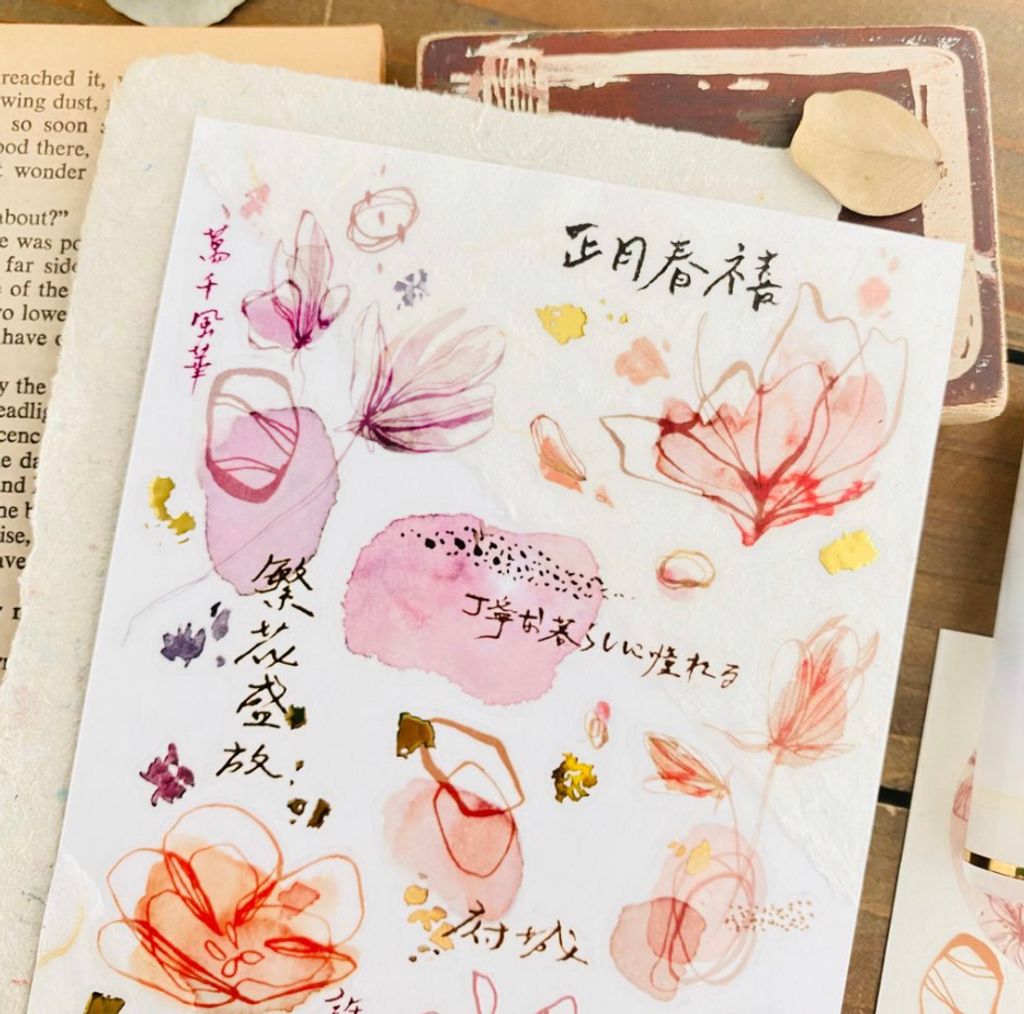 reached it,
wing dust,
so soon
ood there,
wonder
about?"
e was po
far side
e of the
o lowe
have
y the
eadlig
cenc
e da
nd
me h
ise,
ave
萬千風華
正月春禧
繁花盛放
丁寧な暮らしに憧れる
府城